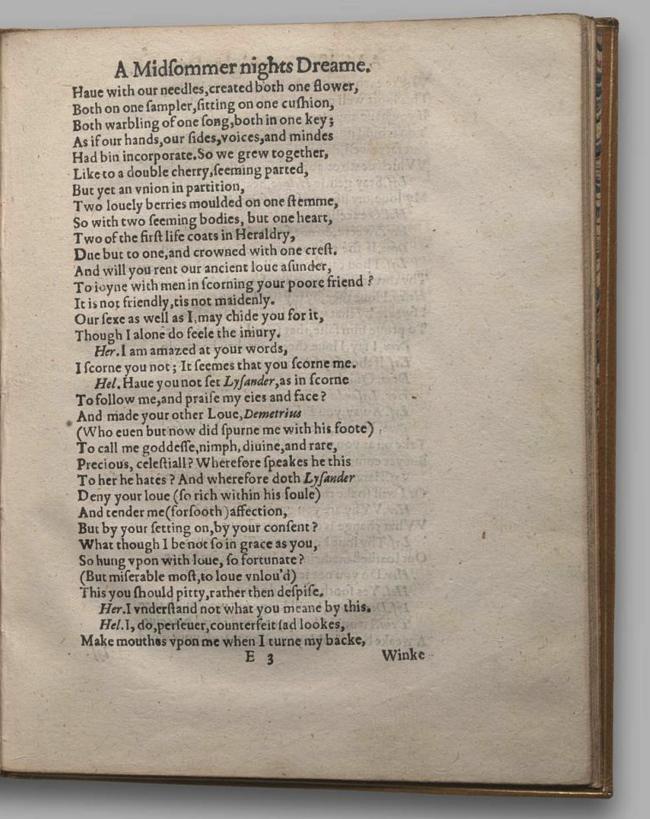 A Midſommer nights Dreame.
Haue with our needles,created both one flower,
Both on one ſampler,ſitting on one cuſhion,
Both warbling of one ſong,both in one key;
As if our hands,our ſides,voices,and mindes
Had bin incorporate.So we grew together,
Like to a double cherry,ſeeming parted,
But yet an vnion in partition,
Two louely berries moulded on one ſtemme,
So with two ſeeming bodies, but one heart,
Two of the firſt life coats in Heraldry,
Due but to one,and crowned with one creſt.
And will you rent our ancient loue aſunder,
To ioyne with men in ſcorning your poore friend ?
It is not friendly,tis not maidenly.
Our ſexe as well as I,may chide you for it,
Though I alone do feele the iniury.
Her.I am amazed at your words,
I ſcorne you not; It ſeemes that you ſcorne me.
Hel.Haue you not ſet Lyſander,as in ſcorne
To follow me,and praiſe my eies and face?
And made your other Loue,Demetrius
(Who euen but now did ſpurne me with his foote)
To call me goddeſſe,nimph, diuine,and rare,
Precious, celeſtiall? Wherefore ſpeakes he this
To her he hates? And wherefore doth Lyſander
Deny your loue (ſo rich within his ſoule)
And tender me(forſooth)affection,
But by your ſetting on,by your conſent?
What though I be not ſo in grace as you,
So hung vpon with loue, ſo fortunate?
(But miſerable moſt,to loue vnlou'd)
This you ſhould pitty,rather then deſpiſe.
Her.I vnderſtand not what you meane by this.
Hel.I, do,perſeuer,counterfeit ſad lookes,
Make mouthes vpon me when I turne my backe,
E 3 Winke